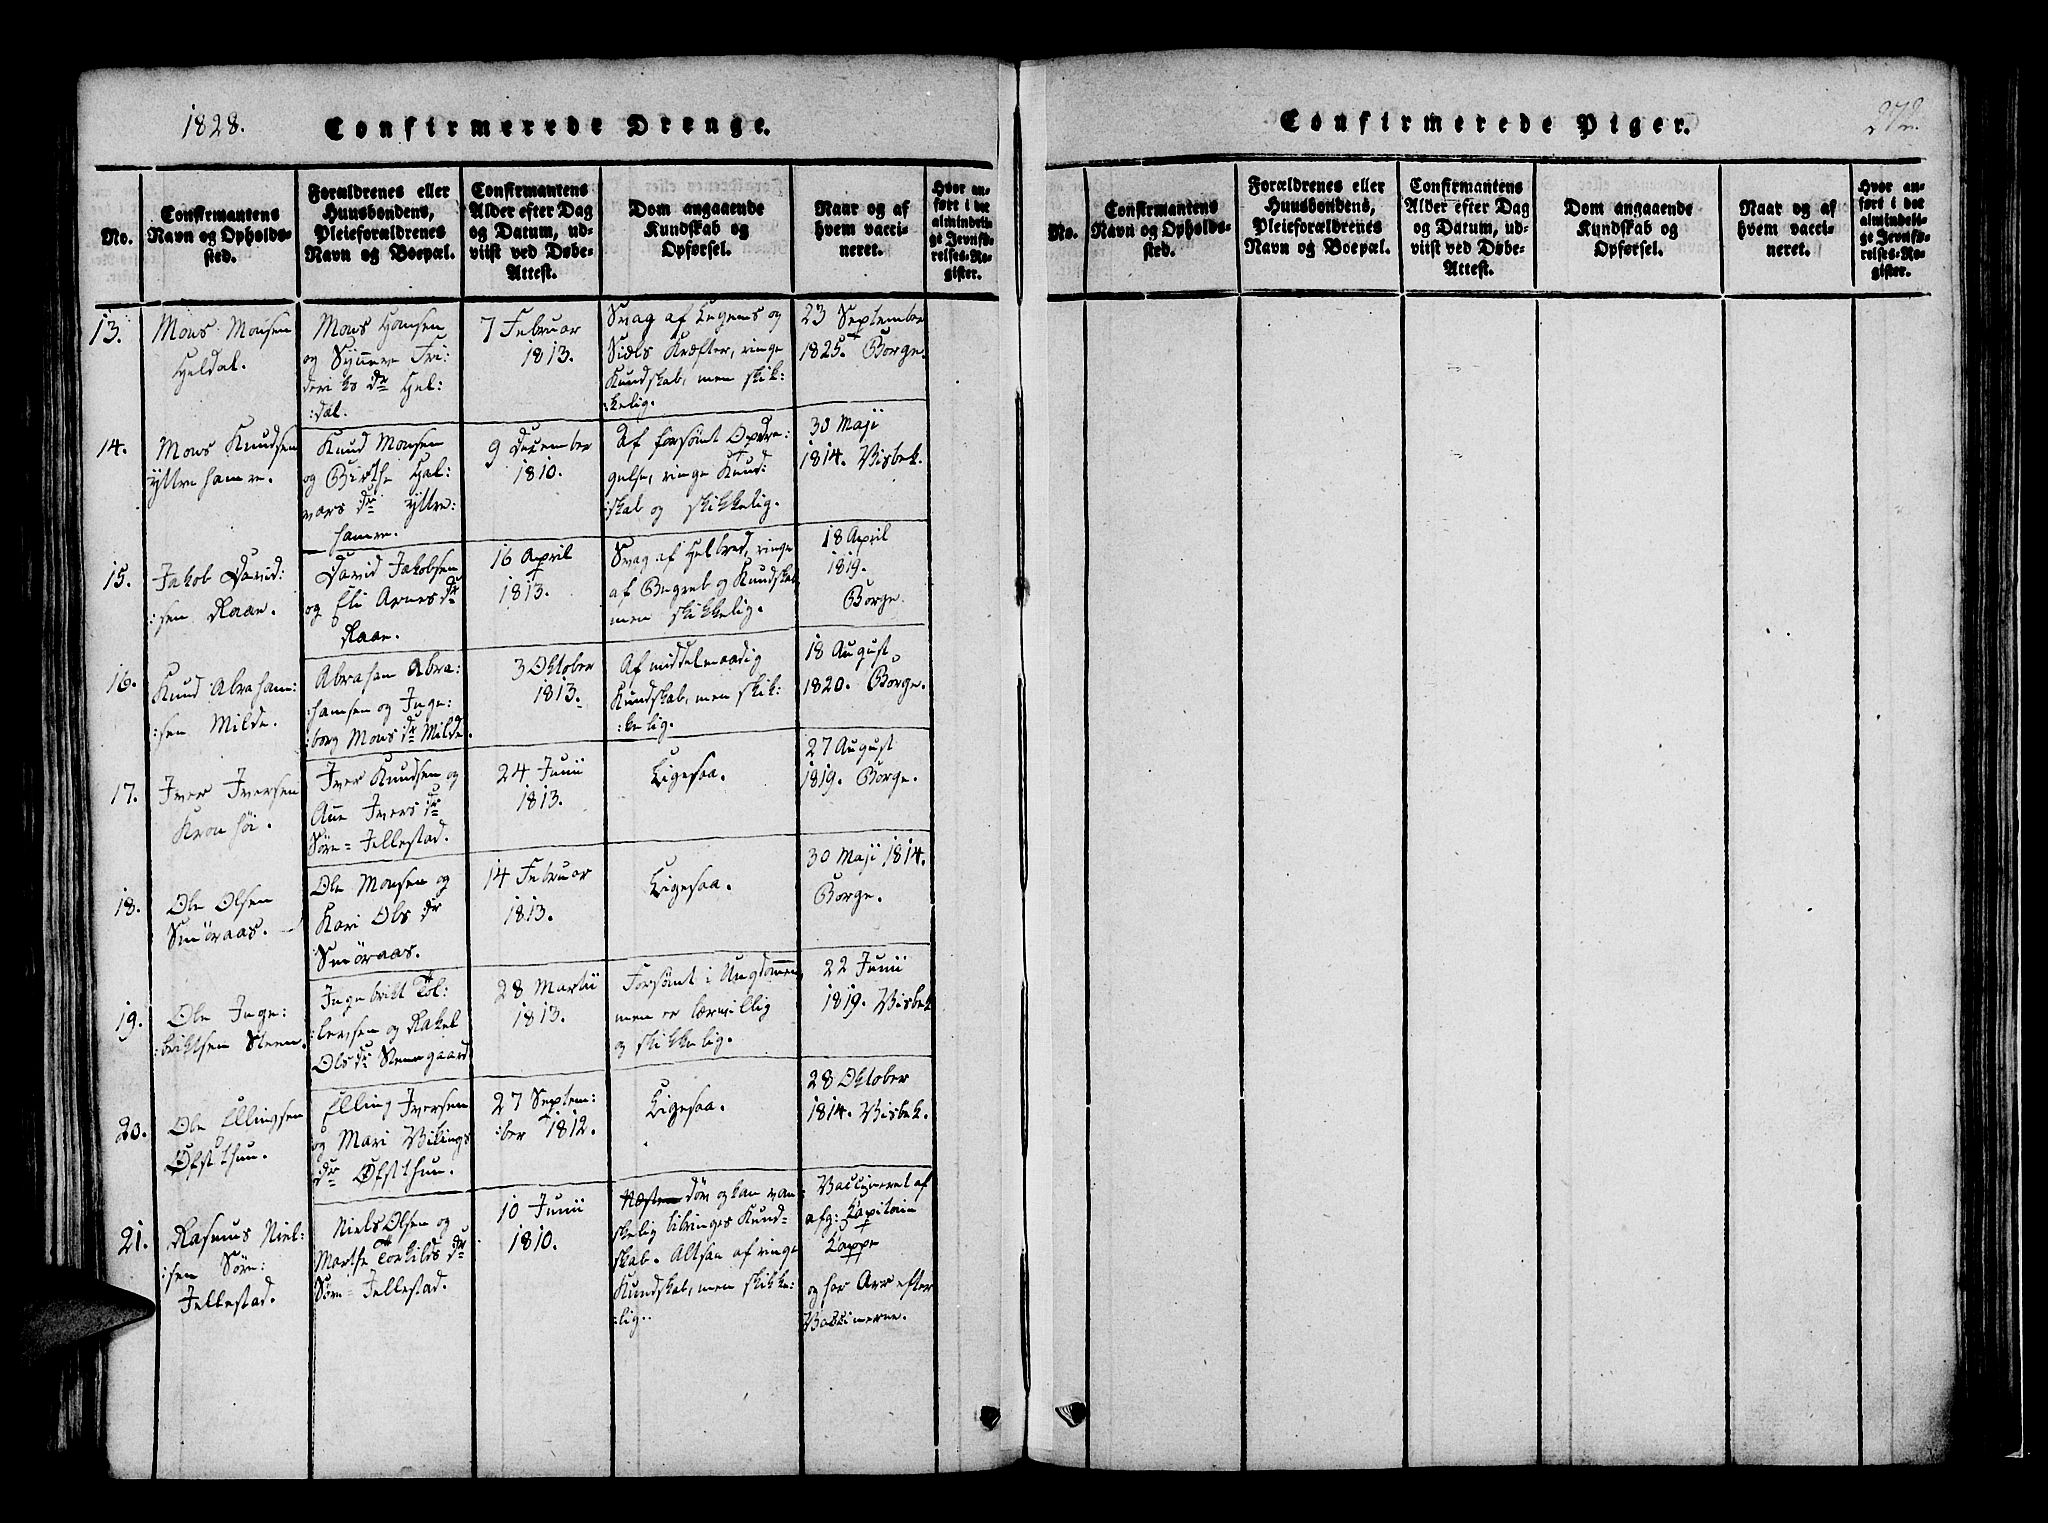 1828.
Confirmerede Drenge.
No.
Confirmantens
Navn og Opholds-
sted.
Forældrenes eller
Huusbondens,
Pleieforældrenes
Navn og Boepæl.
Confirmantens
Alder efter Dag
og Datum, ud-
viist ved Døbe-
Attest.
Dom angaaende
Kundskab og
Opførsel.
Naar og af
hvem vacci-
neret.
Hvor an-
ført i det
almindeli-
ge Jevnfø-
relses-Re-
gister.
13.
Mons Monsen
Heldal.
Mons Hansen
og Synneve Fri:
deriks dr Hel:
:dal.
7 Februar
1813.
Svag af Legems og
Siæls Kræfter, ringe
Kundskab, men skik:
:kelig.
23 September
1825. Borge.
14.
Mons Knudsen
yttre hamre.
Knud Monsen
og Birthe Hal:
vors dr yttre:
hamre.
9 December
1810.
Af forsömt Opdra:
gelse, ringe Kund:
:skab og skikkelig.
30 Maji
1814. Bisbek.
15.
Jakob David:
:sen Raae.
David Jakobsen
og Eli Arnesdr
Raae.
16 April
1813.
Svag af Helbred, ringe
af Begreb og Kundskab
men skikkelig.
18 April
1819.
Borge.
16.
Knud Abraham:
:sen Milde.
Abraham Abra:
:hamsen og Inge:
:borg Mons dr Milde.
3 Oktober
1813.
Af middelmaadig
Kundskab, men skik:
:kelig.
18 August
1820. Borge.
17.
Iver Iversen
Kronhöi.
Iver Knudsen og
Ane Ivers dr
Söre=Jellestad.
24 Junii
1813.
Ligesaa.
27 August
1819. Borge.
18.
Ole Olsen
Smöraas.
Ole Monsen og
Kari Ols dr
Smöraas.
14 Februar
1813.
Ligesaa.
30 Maji 1814.
Borge.
19.
Ole Inge:
:briktsen Steen.
Ingebrikt Tol:
:levsen og Rakel
Olsdr Steensgaard
28 Martii
1813.
Forsömt i Ungdommen
men er lærvillig
og skikkelig.
22 Junii
1819. Bisbek
20.
Ole Ellingsen
Öfstthun.
Elling Iversen
og Mari Vilings
dr Öfstthun.
27 Septem:
:ber 1812.
Ligesaa.
28 Oktober
1814. Bisbek.
21.
Rasmus Niel:
:sen Söre:
Jellestad.
Niels Olsen og
Marthe Torkilds dr
Söre Jellestad.
10 Junii
1810.
Næsten döv og kan van:
skelig bibringes Kund-
skab. Altsaa af ringe
Kundskab, men skikke:
:lig.
Vaccineret af
afg: Kapitain
Kappe
og har Arr efter
Vaccinerne.
Confirmerede Piger.
272.
No.
Confirmantens
Navn og Opholds-
sted.
Forældrenes eller
Huusbondens,
Pleieforældrenes
Navn og Boepæl.
Confirmantens
Alder efter Dag
og Datum, ud-
viist ved Døbe-
Attest.
Dom angaaende
Kundskab og
Opførsel.
Naar og af
hvem vacci-
neret.
Hvor an-
ført i det
almindeli-
ge Jevnfø-
relses-Re-
gister.